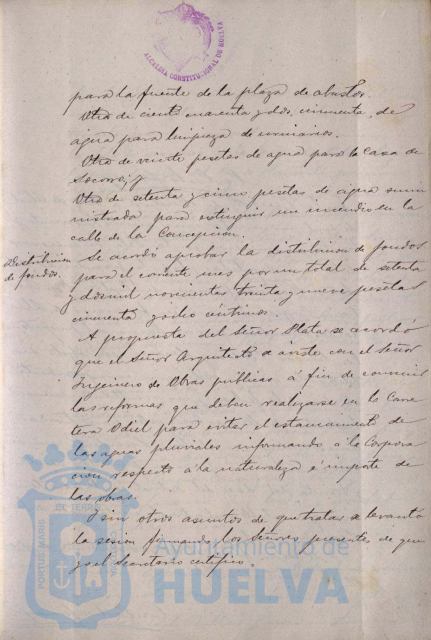 ALCALDIA CONSTITUCIONAL DE HUELVA
para la fuente de la plaza de abastos.
Otro de ciento cuarenta y dos, cincuenta, de
agua para limpieza de urinarios.
Otro de veinte pesetas de agua para la Casa de
Socorro; y
Otro de setenta y cinco pesetas de agua sumi
nistrada para extinguir un incendio en la
calle de la Concepcion.
Distribucion
de fondos.
Se acordó aprobar la distribucion de fondos
para el corriente mes por un total de setenta
y dos mil novecientas treinta y nueve pesetas
cincuenta y ocho céntimos.
A propuesta del Señor Plata se acordó
que el Señor Arquitecto se aviste con el Señor
Ingeniero de Obras públicas á fin de convenir
las reformas que deben realizarse en la Carre
tera Odiel para evitar el estancamiento de
las aguas pluviales informando á la Corpora
cion respecto á la naturaleza é importe de
las obras.
Y sin otros asuntos de que tratar se levantó
la sesión firmando los Señores presentes de que
yo el Secretario certifico.
PORTUS MARIS ET TERRE
Ayuntamiento de
HUELVA